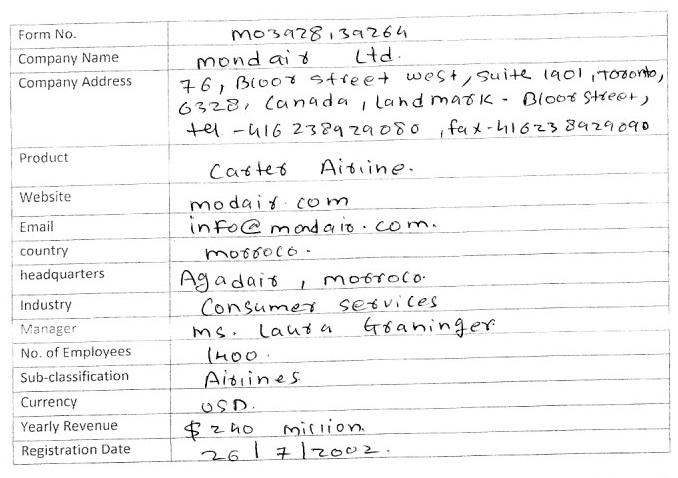 Form No. M03928139264
Company Name Mondair Ltd.
Company Address 76, Bloor street west, suite 1901, Toronto,
6328, Canada, Land mark - Bloor street,
tel - 416 238929080, fax - 416238929090
Product Carter Airline.
Website modair.com
Email info@mondair.com.
country morroco.
headquarters Agadair, morroco.
Industry Consumer services
Manager ms. Laura Graninger
No. of Employees 1400.
Sub-classification Airlines
Currency USD.
Yearly Revenue $ 240 million
Registration Date 26/7/2002.